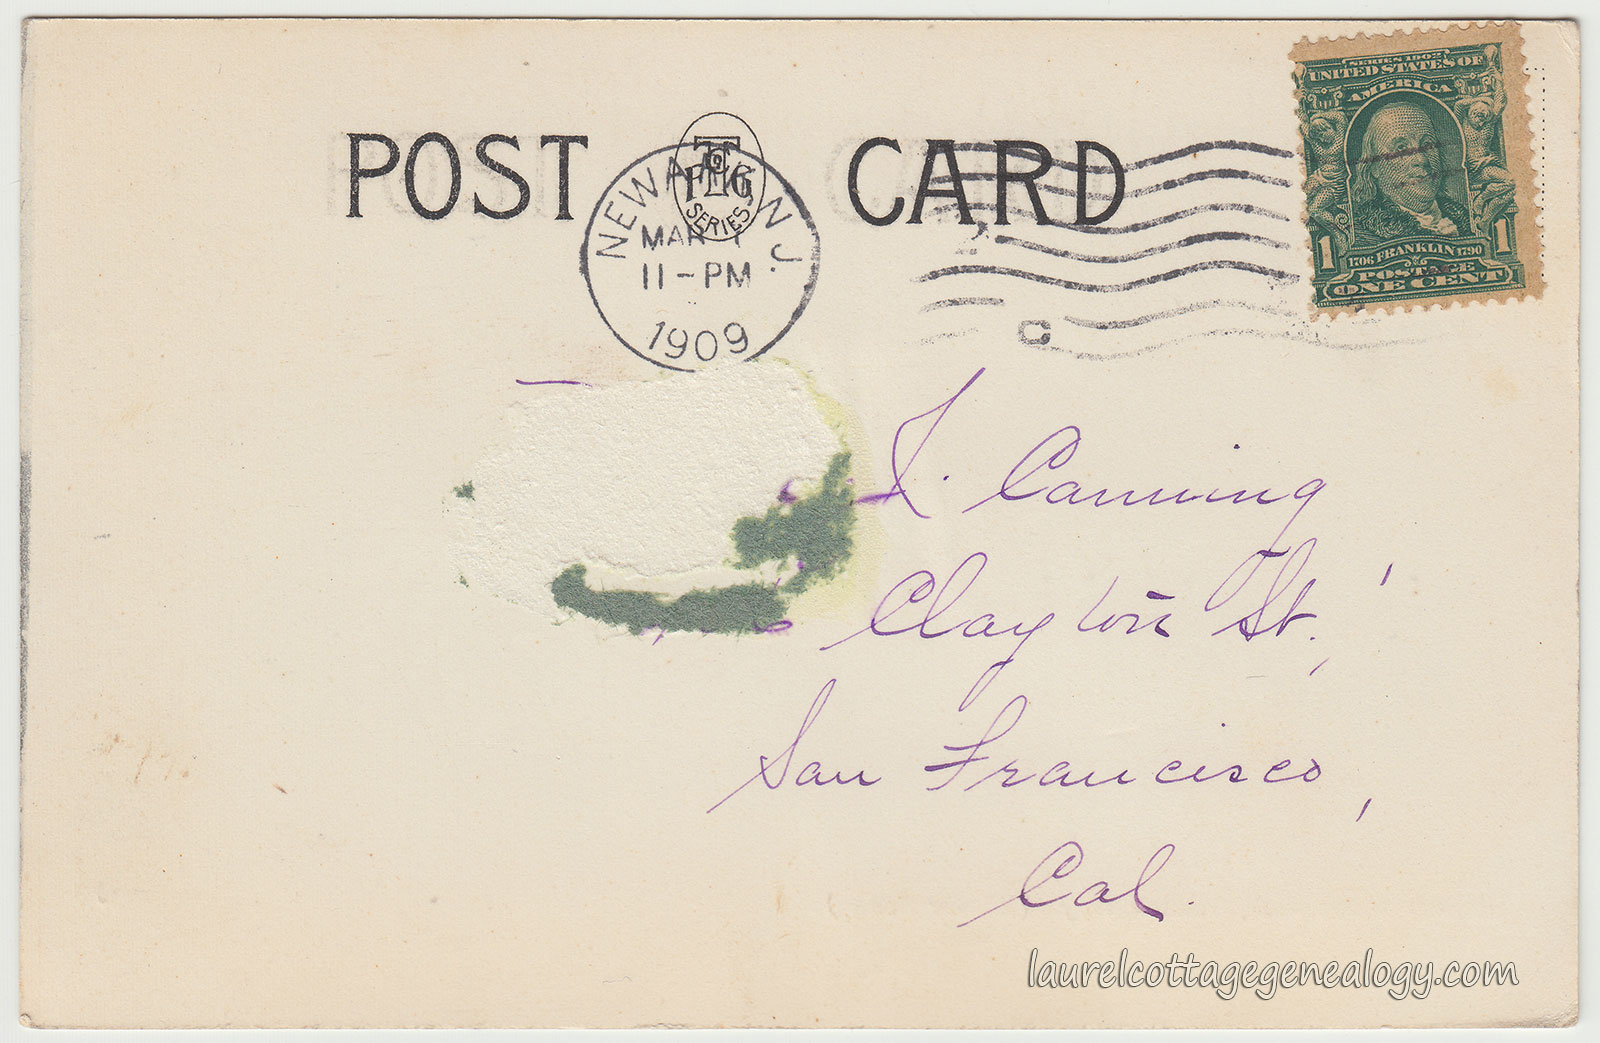 POST CARD
T
Co
P H G
SERIES
NEWARK, N.J.
MAR 1
11-PM
1909
2
C
SERIES 1902
UNITED STATES OF
AMERICA
1 1
1706 FRANKLIN 1790
POSTAGE
ONE CENT
L. Canning
Clayton St.,
San Francisco,
Cal.
laurelcottagegenealogy.com